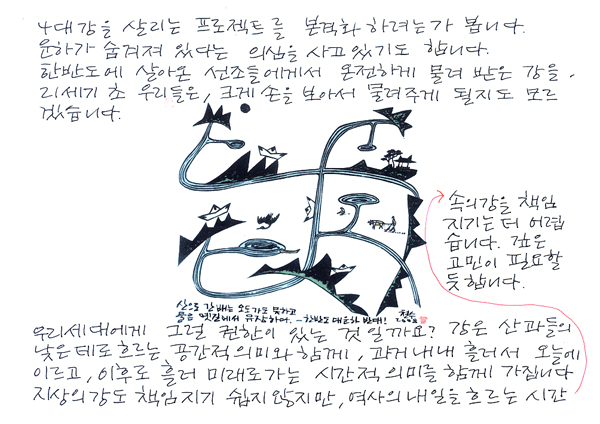 4대강을 살리는 프로젝트를 본격화 하려는가 봅니다.
운하가 숨겨져 있다는 의심을 사고 있기도 합니다.
한반도에 살아온 선조들에게서 온전하게 물려 받은 강을,
21세기 초 우리들은, 크게 손을 보아서 물려주게 될지도 모르
겠습니다.
산으로 간 배는 오도가도 못하고
물은 옛길에서 유장하여. - 한반도 대운하 반대!
우리세대에게 그럴 권한이 있는 것일까요? 강은 산과들의
낮은데로 흐르는 공간적 의미와 함께, 과거 내내 흘러서 오늘에
이르고, 이후로 흘러 미래로 가는 시간적 의미를 함께 가집니다
지상의 강도 책임지기 쉽지 않지만, 역사의 내일을 흐르는 시간
속의 강을 책임
지기는 더 어렵
습니다. 깊은
고민이 필요할
듯 합니다.